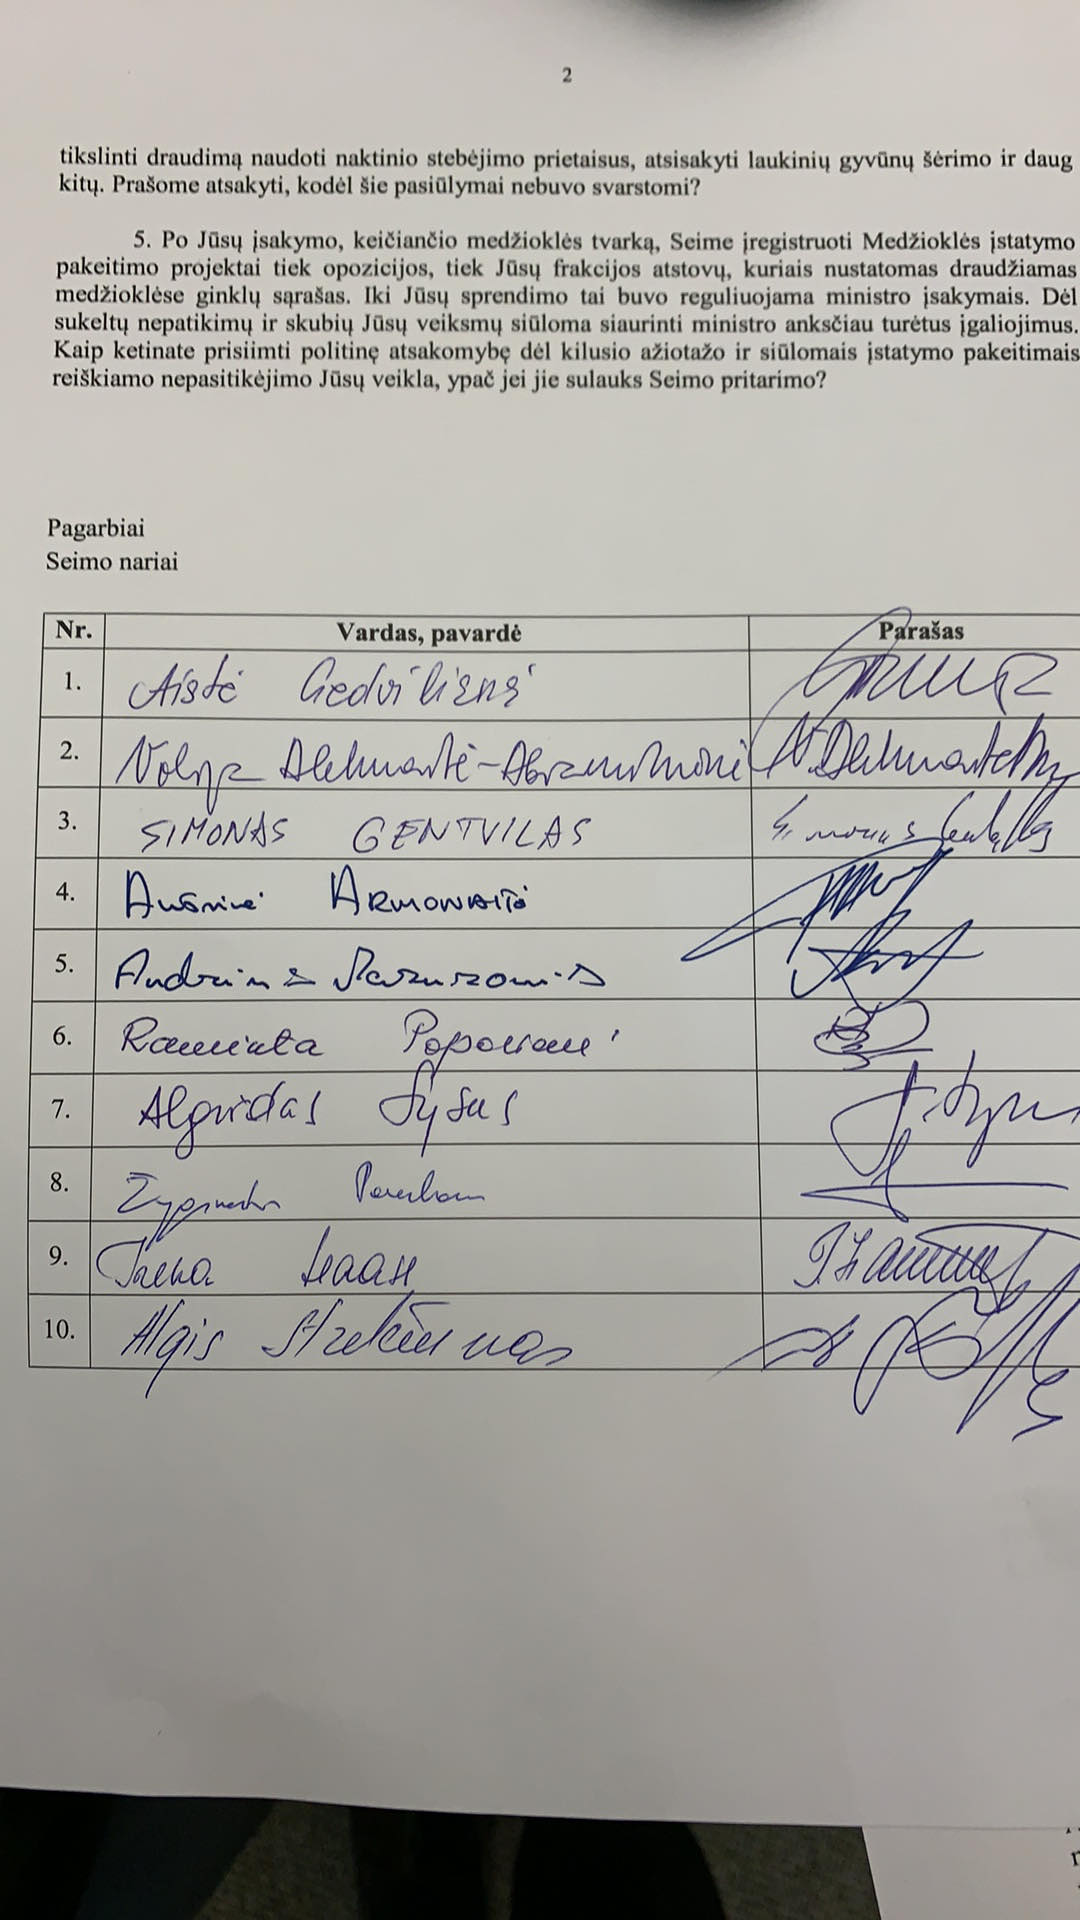 2
tikslinti draudimą naudoti naktinio stebėjimo prietaisus, atsisakyti laukinių gyvūnų šėrimo ir daug
kitų. Prašome atsakyti, kodėl šie pasiūlymai nebuvo svarstomi?
5. Po Jūsų įsakymo, keičiančio medžioklės tvarką, Seime įregistruoti Medžioklės įstatymo
pakeitimo projektai tiek opozicijos, tiek Jūsų frakcijos atstovų, kuriais nustatomas draudžiamas
medžioklėse ginklų sąrašas. Iki Jūsų sprendimo tai buvo reguliuojama ministro įsakymais. Dėl
sukeltų nepatikimų ir skubių Jūsų veiksmų siūloma siaurinti ministro anksčiau turėtus įgaliojimus.
Kaip ketinate prisiimti politinę atsakomybę dėl kilusio ažiotažo ir siūlomais įstatymo pakeitimais
reiškiamo nepasitikėjimo Jūsų veikla, ypač jei jie sulauks Seimo pritarimo?
Pagarbiai
Seimo nariai
Nr. Vardas, pavardė Parašas
1. Aistė Gedvilienė
2.
3. SIMONAS GENTVILAS
4. Aušrinė ARMONAITĖ
5.
6. Raminta Popovienė
7. Algirdas Sysas
8.
9. Irena Haase
10. Algis Strelčiūnas